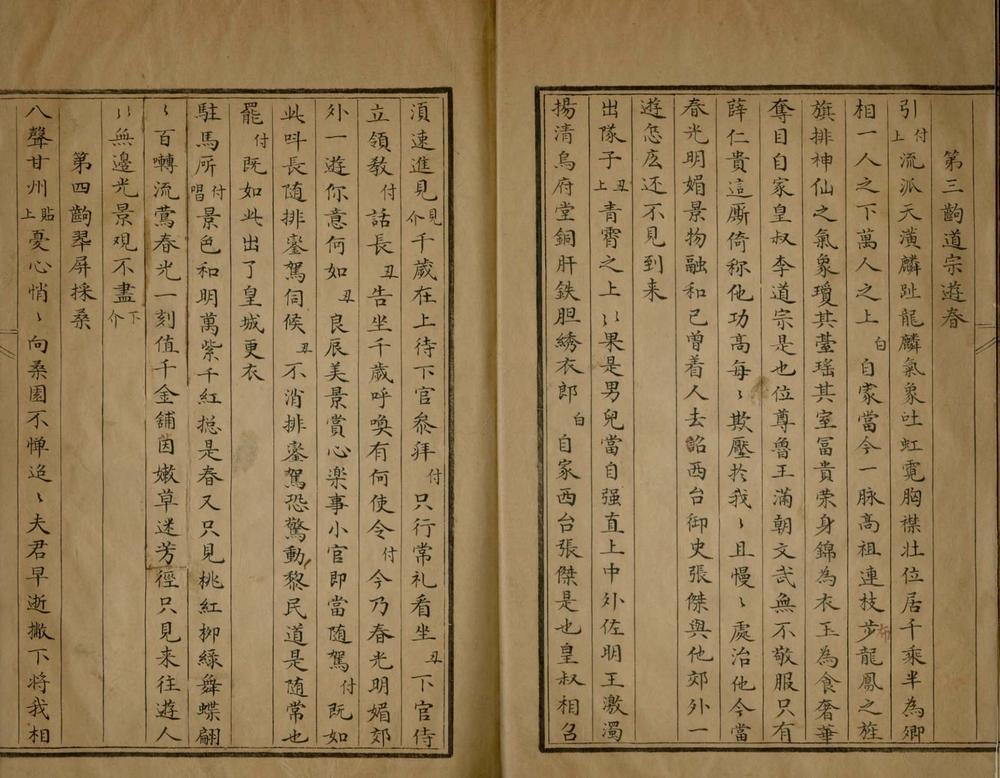 第三齣道宗遊春
引付上流派天潢麟趾龍麟氣象吐虹霓胸襟壯位居千乘半為卿
相一人之下萬人之上白自家當今一脉高祖連枝步龍鳳之旌
旗排神仙之氣象瓊其薹瑤其室冨貴荣身錦為衣玉為食奢華
奪目自家皇叔李道宗是也位尊魯王滿朝文武無不敬服只有
薛仁貴這厮倚称他功髙每〻欺壓扵我〻且慢〻處治他今當
春光明媚景物融和已曾着人去詔西台御史張傑與他郊外一
遊怎庅还不見到来
出隊子丑上青霄之上〻果是男兒當自强直上中外佐明王激濁
揚清烏府堂銅肝鉄胆綉衣郎白自家西台張傑是也皇叔相召
湏速進見見介千歲在上待下官叅拜付只行常礼看坐丑下官侍
立領敎付話長丑告坐千歲呼喚有何使令付今乃春光明媚郊
外一遊你意何如丑良辰美景賞心楽事小官即當随駕付既如
此呌長随排銮駕伺候丑不消排銮駕恐驚動黎民道是随常也
罷付既如此出了皇城更衣
駐馬所付唱景色和明萬紫千紅捴是春又只見桃紅栁綠舞蝶翩
〻百囀流鶯春光一刻值千金舖茵嫰草迷芳徑只見来往遊人
〻無邊光景观不盡下介
第四齣翠屏採桑
八聲甘州貼上憂心悄〻向桑園不憚迢〻夫君早逝撇下将我相